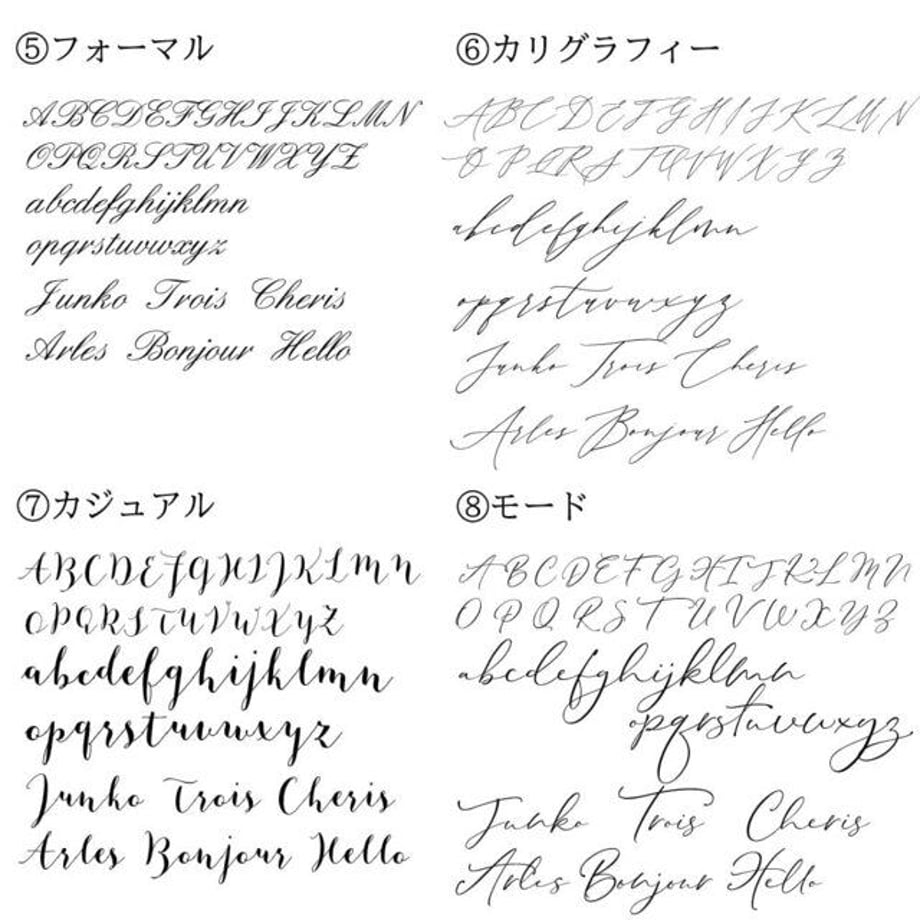 ⑤フォーマル
ABCDEFGHIJKLMN
OPQRSTUVWXYZ
abcdefghijklmn
opqrstuvwxyz
Junko Trois Cheris
Arles Bonjour Hello
⑥カリグラフィー
ABCDEFGHIJKLMN
OPQRSTUVWXYZ
abcdefghijklmn
opqrstuvwxyz
Junko Trois Cheris
Arles Bonjour Hello
⑦カジュアル
ABCDEFGHIJKLMN
OPQRSTUVWXYZ
abcdefghijklmn
opqrstuvwxyz
Junko Trois Cheris
Arles Bonjour Hello
⑧モード
ABCDEFGHIJKLMN
OPQRSTUVWXYZ
abcdefghijklmn
opqrstuvwxyz
Junko Trois Cheris
Arles Bonjour Hello